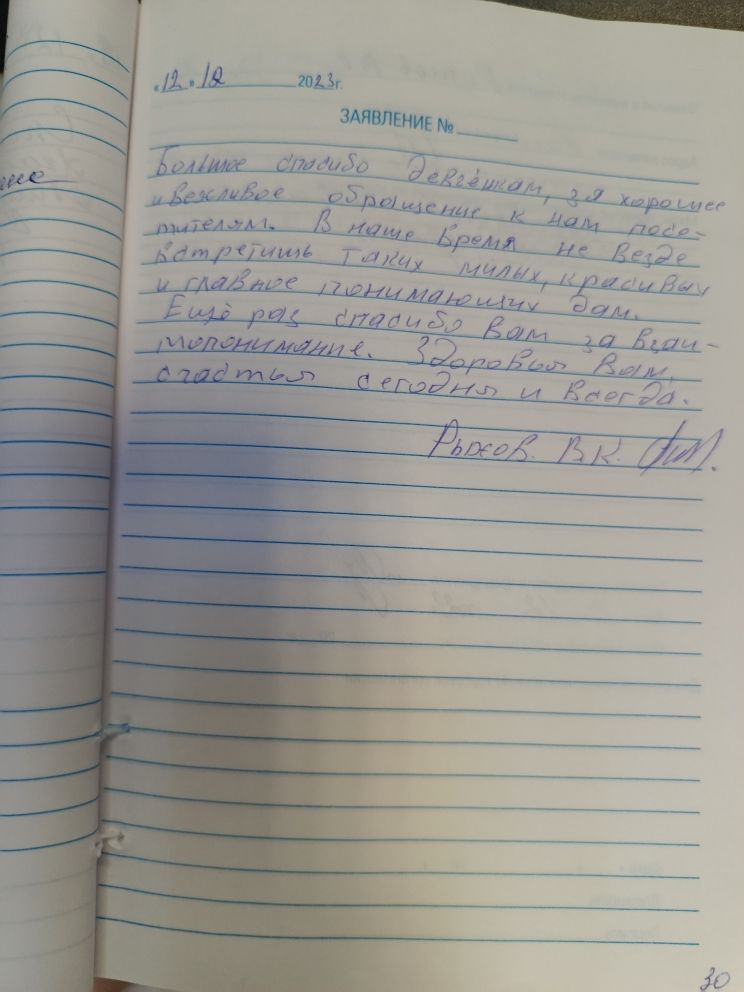 "12" 12 2023г.
ЗАЯВЛЕНИЕ №
Большое спасибо девчёшкам, за хорошее
и вежливое обращение к нам посе-
тителям. В наше время не везде
встретишь таких милых, красивых
и главное понимающих дам.
Ещё раз спасибо вам за взаи-
мопонимание. Здоровья вам,
счастья сегодня и всегда.
Рыжов. В.К.
30